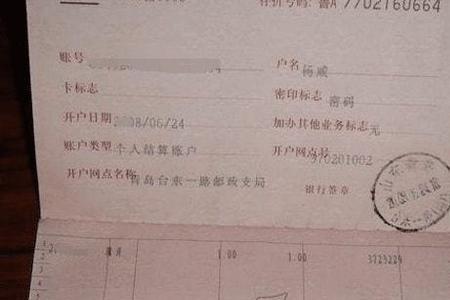 存折号码: 鲁A 7702160664
账号
户名 杨威
卡标志
密印标志 密码
开户日期 2008/06/24
加办其他业务标志 无
账户类型 个人结算账户
开户网点号 370201002
开户网点名称 青岛台东一路邮政支局
银行签章
1.00 1.00 3723229